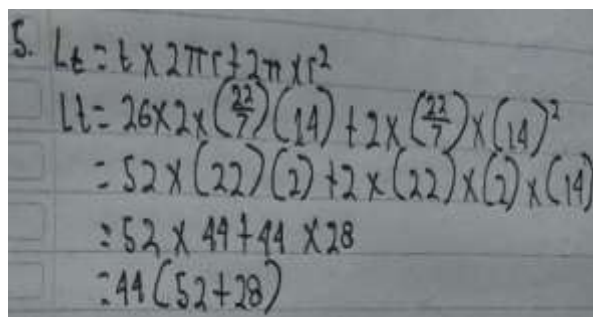 5. Lt = t × 2πr + 2π × r²
Lt = 26×2×(22/7)(14) + 2×(22/7)×(14)²
= 52×(22)(2) + 2×(22)×(2)×(14)
= 52 × 44 + 44 × 28
= 44 (52+28)